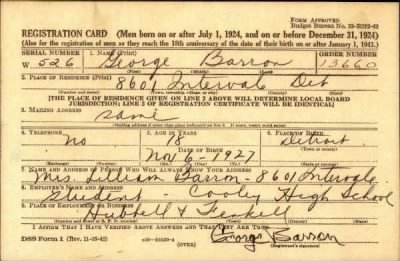 Form Approved
Budget Bureau No. 33-R012-42
REGISTRATION CARD (Men born on or after July 1, 1924, and on or before December 31, 1924)
(Also for the registration of men as they reach the 18th anniversary of the date of their birth on or after January 1, 1943.)
SERIAL NUMBER 1. NAME (Print) ORDER NUMBER
W 526 George Barron 13660
(First) (Middle) (Last)
2. PLACE OF RESIDENCE (Print)
8601 Intervale Det
(Number and street) (Town, township, village or city) (County) (State)
[THE PLACE OF RESIDENCE GIVEN ON LINE 2 ABOVE WILL DETERMINE LOCAL BOARD
JURISDICTION; LINE 2 OF REGISTRATION CERTIFICATE WILL BE IDENTICAL]
3. MAILING ADDRESS
same
[Mailing address if other than place indicated on line 2. If same, insert word same]
4. TELEPHONE 5. AGE IN YEARS 6. PLACE OF BIRTH
no 18 Detroit
DATE OF BIRTH
Nov 6 - 1927
(Exchange) (Number) (Mo.) (Day) (Yr.) (State or country)
7. NAME AND ADDRESS OF PERSON WHO WILL ALWAYS KNOW YOUR ADDRESS
Mrs. Lillian Barron - 8601 Intervale
8. EMPLOYER'S NAME AND ADDRESS
student - Cooley High School
9. PLACE OF EMPLOYMENT OR BUSINESS
Hubbell & Fenkell
(Number and street or R. F. D. number) (Town) (County) (State)
I AFFIRM THAT I HAVE VERIFIED ABOVE ANSWERS AND THAT THEY ARE TRUE.
DSS Form 1 (Rev. 11-16-42) (OVER) George Barron
(Registrant's signature)